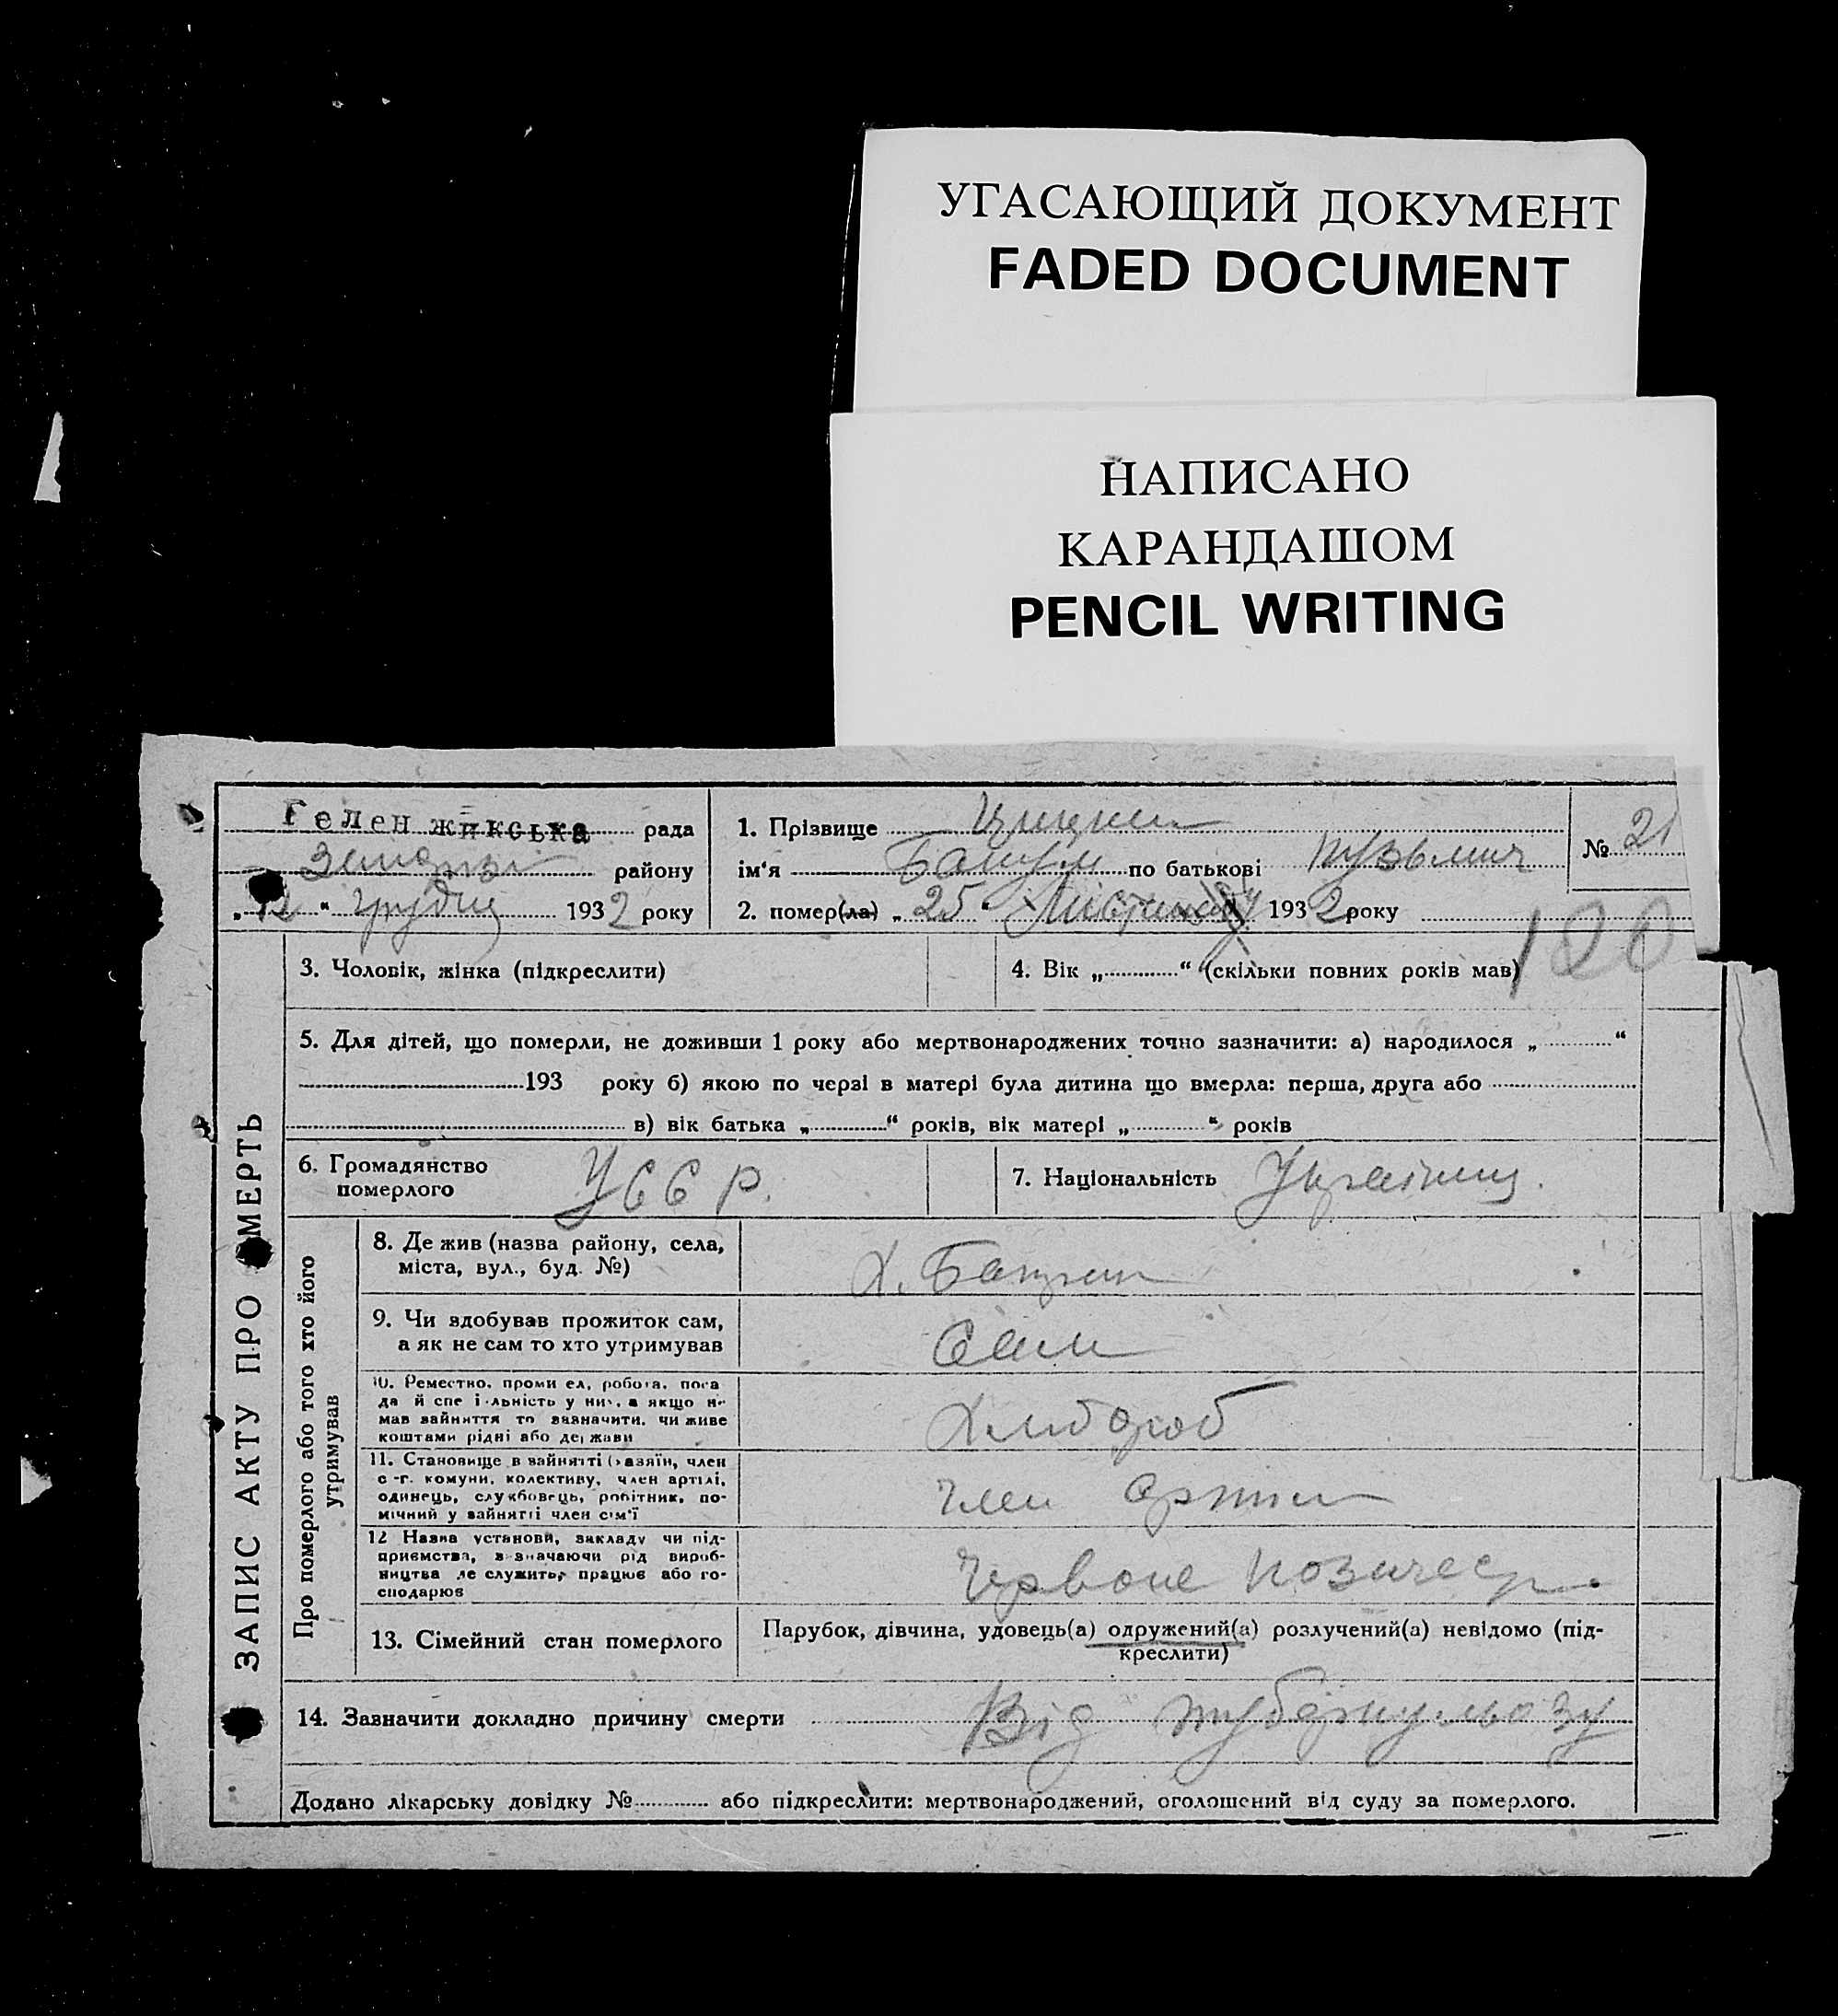 УГАСАЮЩИЙ ДОКУМЕНТ
FADED DOCUMENT
НАПИСАНО
КАРАНДАШОМ
PENCIL WRITING
Гелен жикська рада
району
„12“ Грудня 1932 року
1. Прізвище
ім‘я по батькові
2. помер(ла) „25“ Листопаду 1932 року
№ 21
100
3. Чоловік, жінка (підкреслити)
4. Вік „ “ (скільки повних років мав)
5. Для дітей, що померли, не доживши 1 року або мертвонароджених точно зазначити: а) народилося „ “
193 року б) якою по черзі в матері була дитина що вмерла: перша, друга або
в) вік батька „ “ років, вік матері „ “ років
6. Громадянство
померлого
УССР.
7. Національність Українец.
ЗАПИС АКТУ ПРО СМЕРТЬ
Про померлого або того хто його
утримував
8. Де жив (назва району, села,
міста, вул., буд. №)
Х.
9. Чи здобував прожиток сам,
а як не сам то хто утримував
Сам
10. Реместно, проми ел, робота, поса
да й спе і льність у ни , а якщо не
мав зайняття то зазначити, чи живе
коштами рідні або держави
Хлибороб
11. Становище в зайнятті (хазяїн, член
с -г. комуни, колективу, член артілі,
одинець, службовець, робітник, по-
мічний у зайнятті член сім‘ї
Член Артили
12 Назва установи, закладу чи під-
приємства, в значаючи рід вироб-
ництва де служить, працює або го-
сподарює
Червоне
13. Сімейний стан померлого
Парубок, дівчина, удовець(а) одружений(а) розлучений(а) невідомо (під-
креслити)
14. Зазначити докладно причину смерти Від туберкульозу
Додано лікарську довідку № або підкреслити: мертвонароджений, оголошений від суду за померлого.